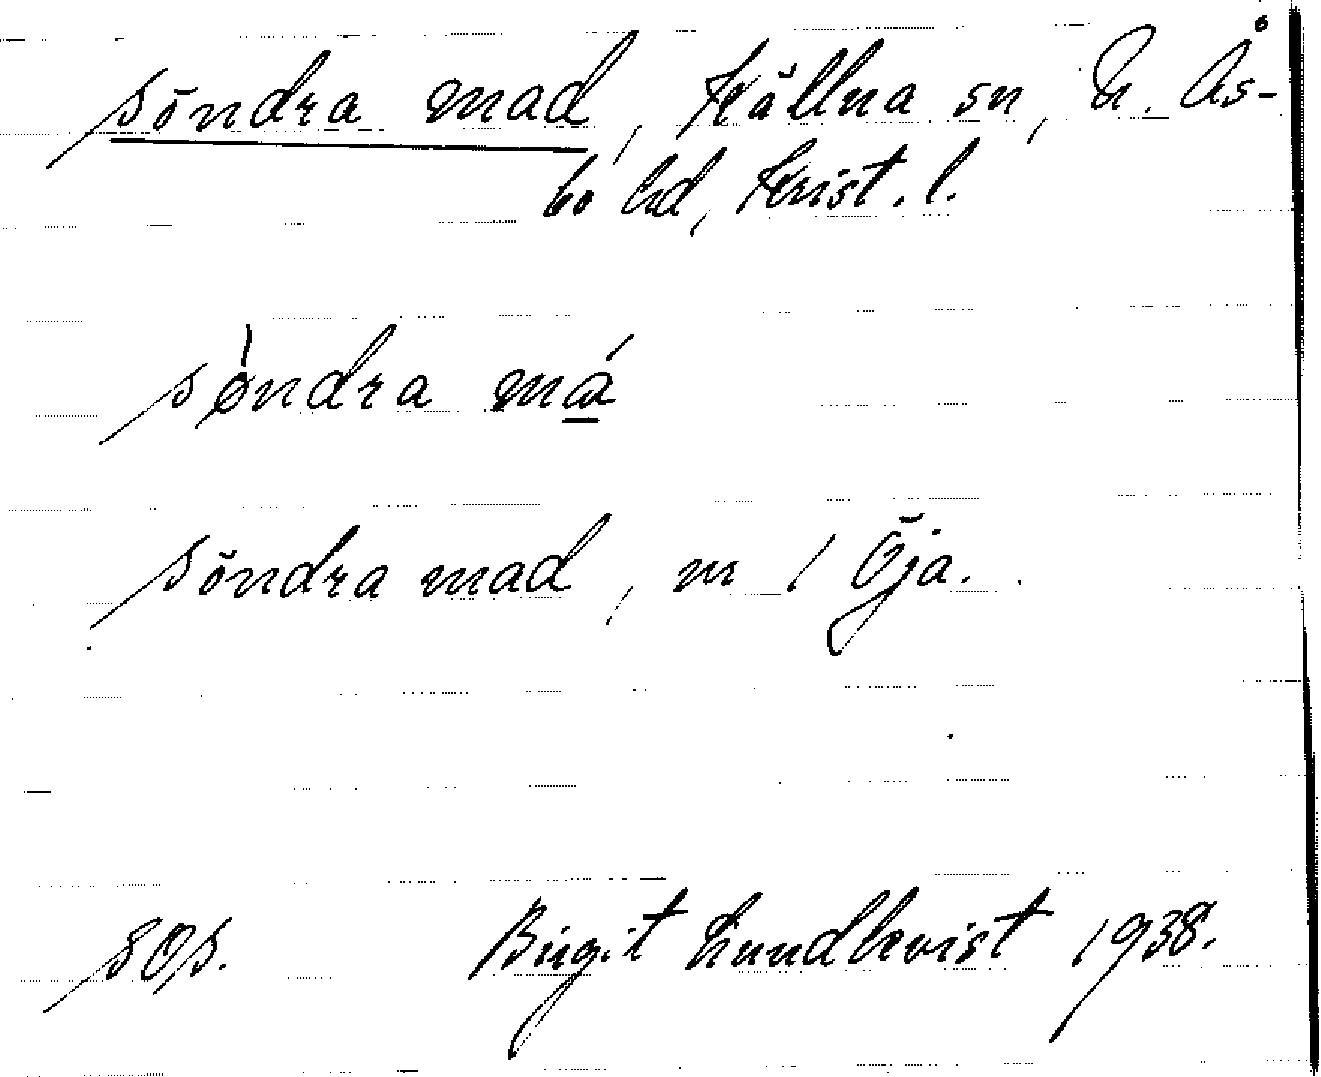 söndra mad, Källna sn, N. Ås-
bo hd, Krist. l.
søndra má
söndra mad, m 1 Öja.
sOs. Birgit Lundkvist 1938.